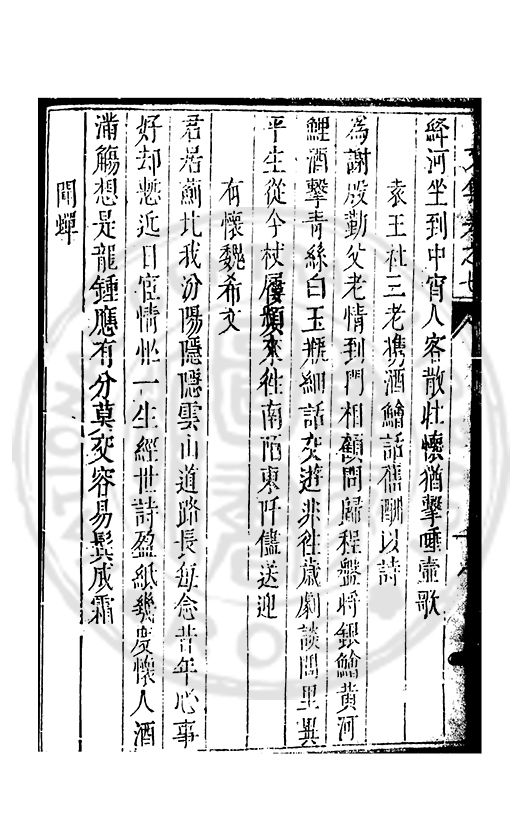 絳河坐到中宵人客散壯懷猶擊唾壺歌
袁王社三老携酒鱠話舊酬以詩
為謝殷勤父老情到門相顧問歸程盤將銀鱠黃河
鯉酒擊青絲白玉瓶細話交遊非往歲劇談閭里異
平生從今杖屨頻來往南陌東阡儘送迎
有懷魏希文
君居薊北我汾陽隱隱雲山道路長每念昔年心事
好却慙近日宦情一生經世詩盈紙幾度懷人酒
滿觴想是龍鍾應有分莫交容易鬂成霜
聞蟬